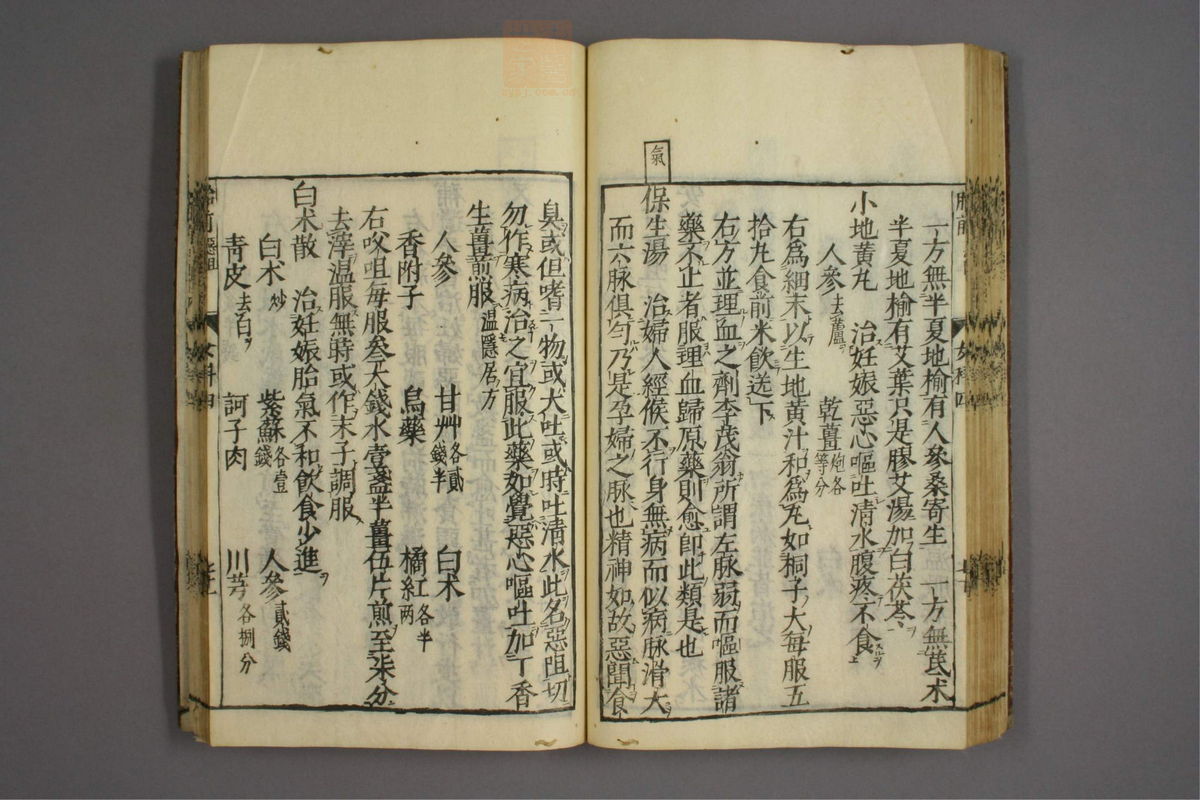 一方無半夏地榆有人參桑寄生 一方無芪术
半夏地榆有艾葉只是膠艾湯加白茯苓
小地黄丸 治妊娠惡心嘔吐清水腹疼不食
人參去蘆 乾薑炮各等分
右爲細末以生地黄汁和爲丸如桐子大每服五
拾丸食前米飲送下
右方並理血之劑李茂翁所謂左脉弱而嘔服諸
藥不止者服理血歸原藥則愈卽此類是也
氣
保生湯 治婦人經候不行身無病而似病脉滑大
而六脉俱匀乃是孕婦之脉也精神如故惡聞食
臭或但嗜一物或大吐或時吐清水此名惡阻切
勿作寒病治之宜服此藥如覺惡心嘔吐加丁香
生薑煎服温隱居方
人參 甘艸各貳錢半 白术
香附子 烏藥 橘紅各半兩
右㕮咀每服叁大錢水壹盞半薑伍片煎至柒分
去滓温服無時或作末子調服
白术散 治妊娠胎氣不和飲食少進
白术炒 紫蘇各壹錢 人參貳錢
青皮去白 訶子肉 川芎各捌分
胎前
女科四